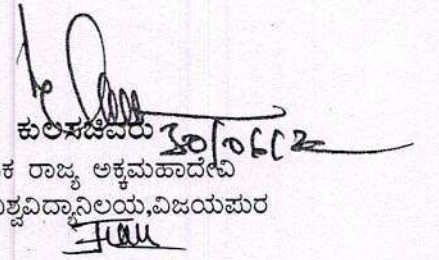 ಕುಲಸಚಿವರು 30/06/2
ಕ ರಾಜ್ಯ ಅಕ್ಕಮಹಾದೇವಿ
ಶ್ವವಿದ್ಯಾನಿಲಯ,ವಿಜಯಪುರ